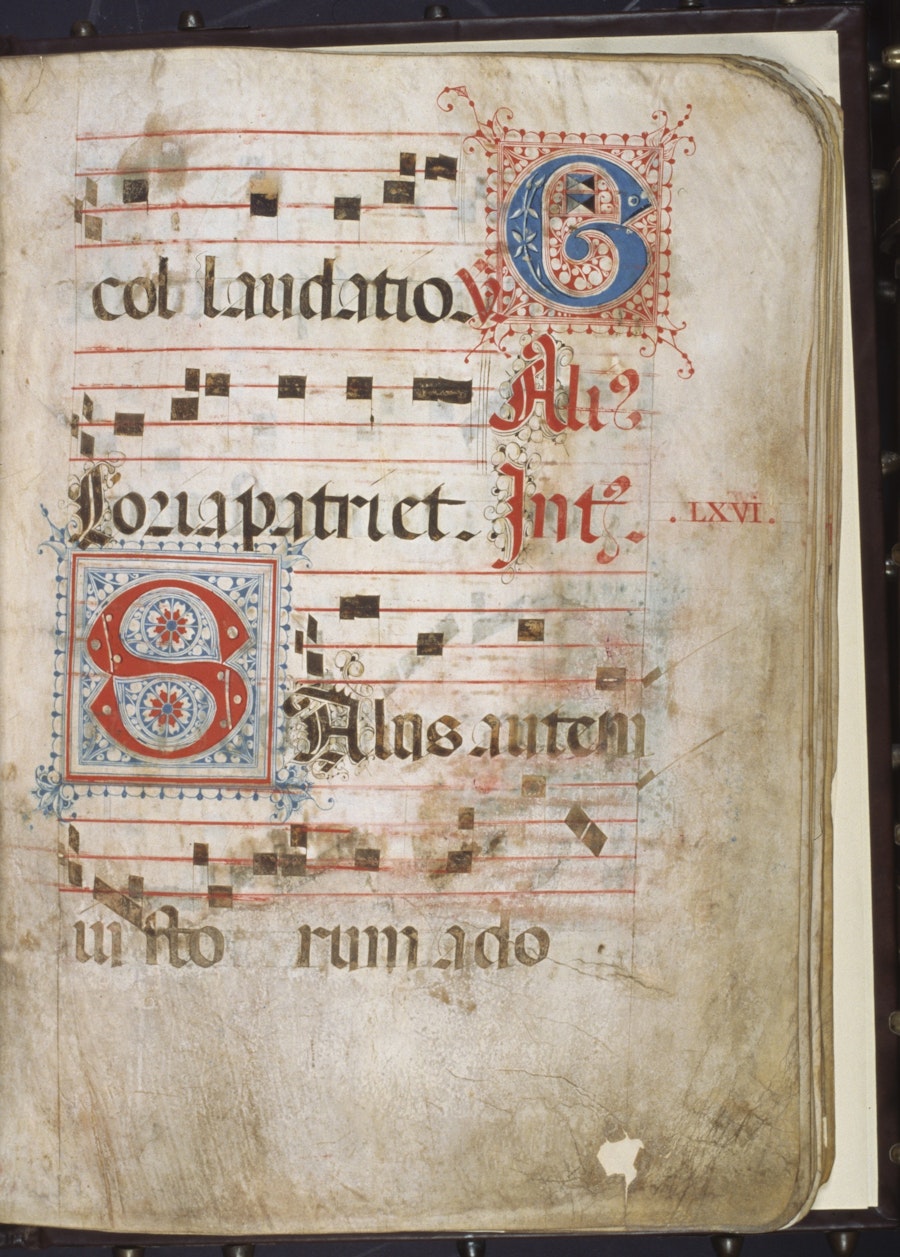 col laudatio. V. G
Ali?
Loria patri et. Int?. .LXVI.
S Alus autem
iu sto rum a do